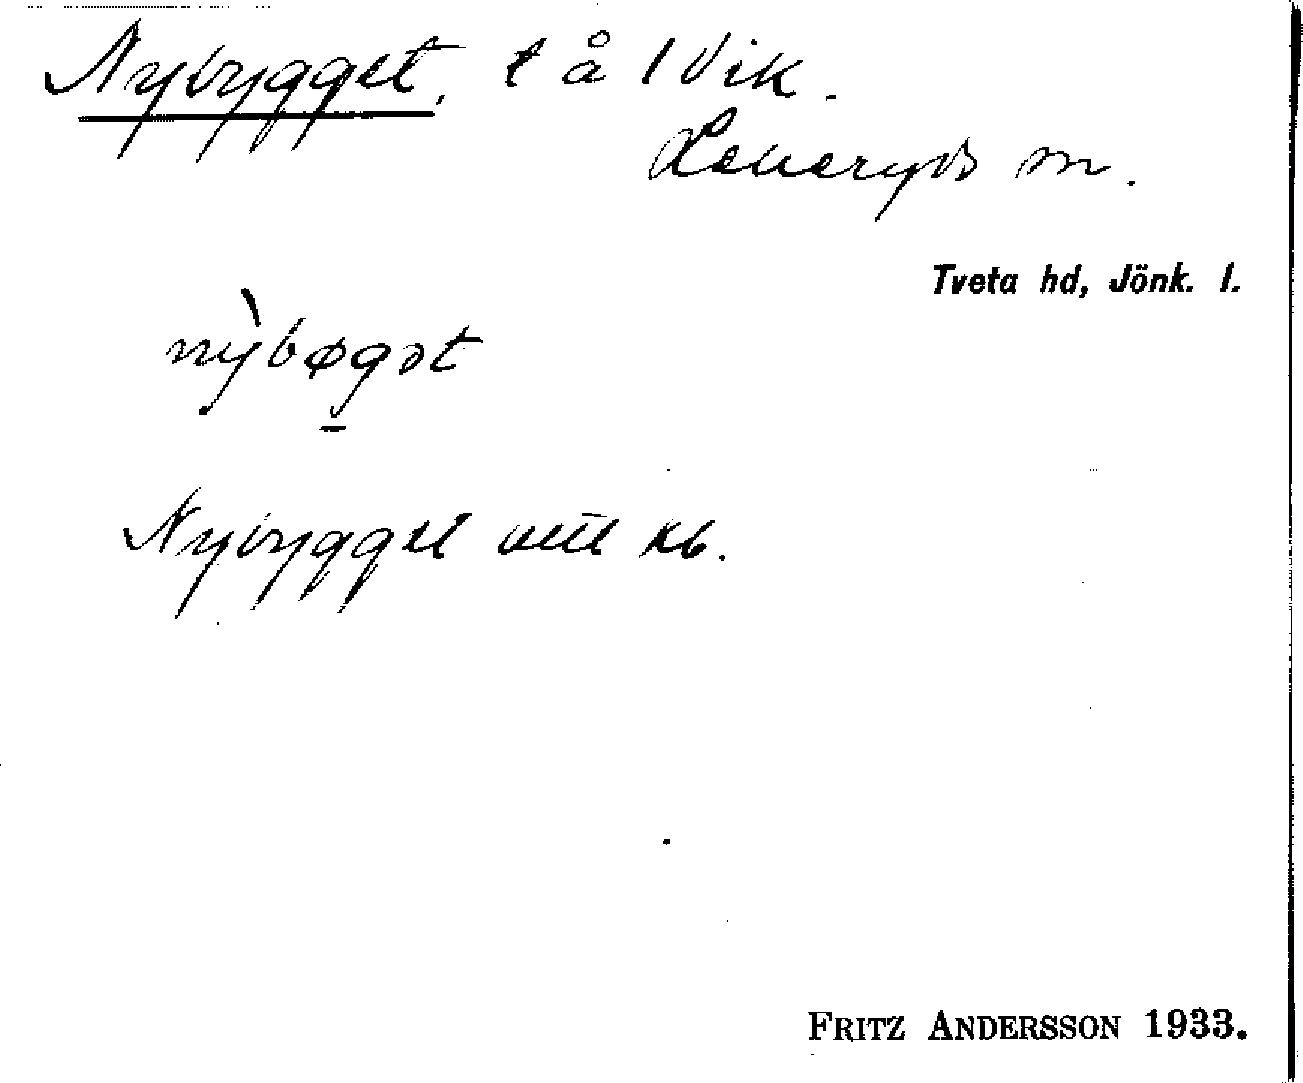 Nybygget, t å 1 Vik.
Lekeryds sn.
Tveta hd, Jönk. l.
nỳbøgət
Nybygget
kb.
FRITZ ANDERSSON 1933.